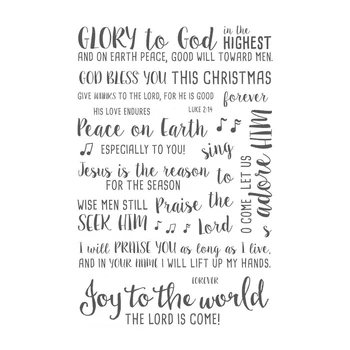 GLORY to God in the HIGHEST
AND ON EARTH PEACE, GOOD WILL TOWARD MEN.
GOD BLESS YOU THIS CHRISTMAS
GIVE THANKS TO THE LORD, FOR HE IS GOOD
HIS LOVE ENDURES forever
LUKE 2:14
Peace on Earth
ESPECIALLY TO YOU!
sing
Jesus is the reason
FOR THE SEASON
to
WISE MEN STILL
SEEK HIM
Praise the
Lord
O COME LET US
adore HIM
s
I will PRAISE YOU as long as I live,
AND IN YOUR NAME I WILL LIFT UP MY HANDS.
FOREVER
Joy to the world
THE LORD IS COME!